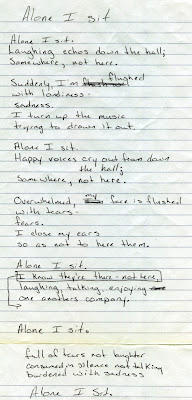 Alone I sit
Alone I sit.
Laughing echos down the hall;
Somewhere, not here.
Suddenly, I'm flushed
with londiness-
sadness.
I turn up the music
trying to drown it out.
Alone I sit.
Happy voices cry out from down
the hall;
Somewhere, not here.
Overwhelmed, my face is flushed
with tears-
fears.
I close my ears
so as not to here them.
Alone I sit.
I know they're there - not here,
laughing, talking, enjoying
one anothers company.
Alone I sit.
full of tears not laughter
consumed in silence not talking
burdened with sadness
Alone I Sit.